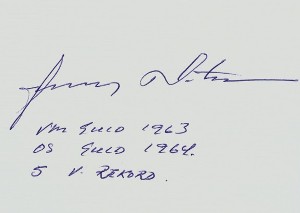 VM GULD 1963
OS GULD 1964.
5 V. REKORD.